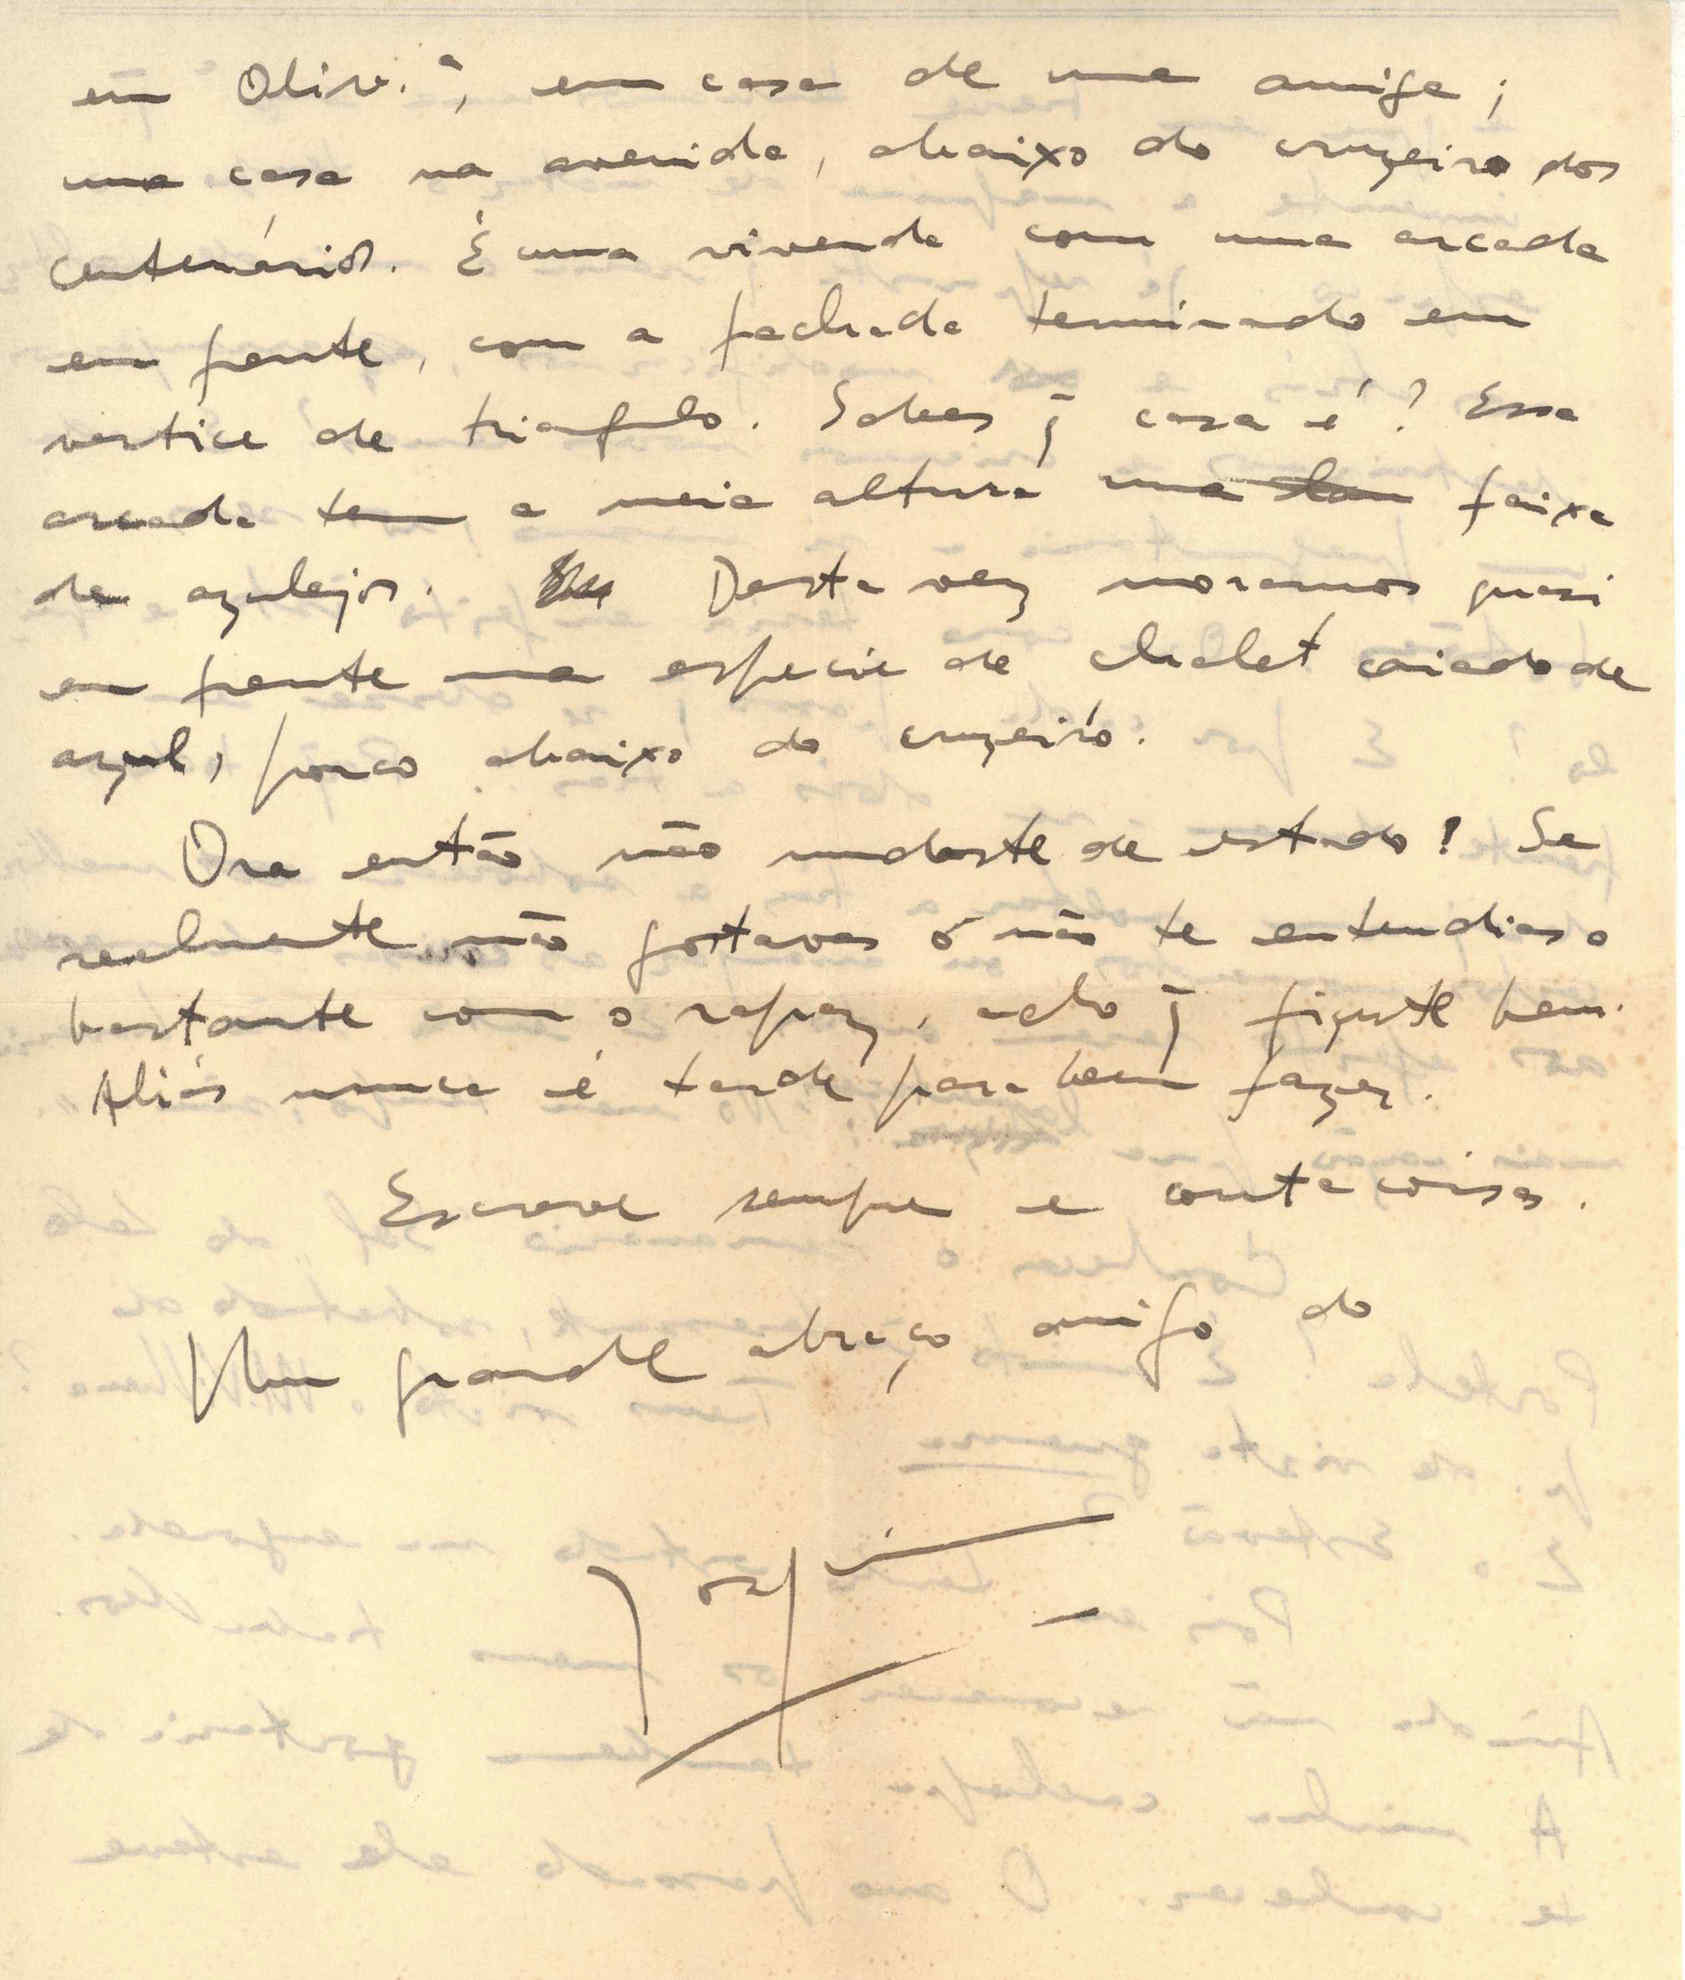 em Oliv.ª, em casa de uma amiga;
uma casa na avenida, abaixo do cruzeiro dos
centenários. É uma vivenda com uma arcada
em frente, com a fachada terminado em
vertice de triangulo. Sabes q̄ casa é? Essa
arcada tem a meia altura uma faixa
de azulejos. Desta vez moramos quasi
em frente uma especie de chalet caiado de
azul, pouco abaixo do cruzeiro.
Ora então não mudaste de estado! Se
realmente não gostavas ó não te entendias o
bastante com o rapaz, acho q̄ fizeste bem.
Aliás nunca é tarde para bem fazer.
Escreve sempre e conta coisas.
Um grande abraço amigo do